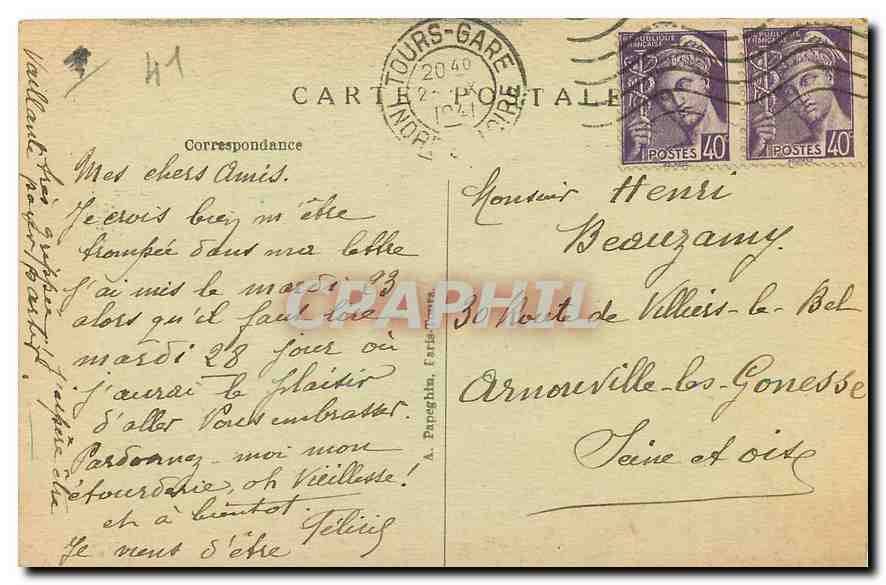 41
TOURS-GARE
20 40
1941
INDRE LOIRE
RÉPUBLIQUE FRANÇAISE
40F
POSTES
RÉPUBLIQUE FRANÇAISE
40F
POSTES
CARTE POSTALE
Correspondance
Mes chers Amis.
Je crois bien m'être
trompée dans ma lettre
j'ai mis le mardi 23
alors qu'il faut lire
mardi 28 jour où
j'aurai le plaisir
d'aller Vous embrasser.
Pardonnez-moi mon
étourderie, oh Vieillesse!
et à bientôt.
Félicie
Je viens d'être
très grippée j'espère être
Vaillante pour partir!
A. Papeghin, Paris-Tours.
Monsieur Henri
Beauzamy.
30 Route de Villiers-le-Bel
Arnouville-les-Gonesse
Seine et Oise
CPAPHIL